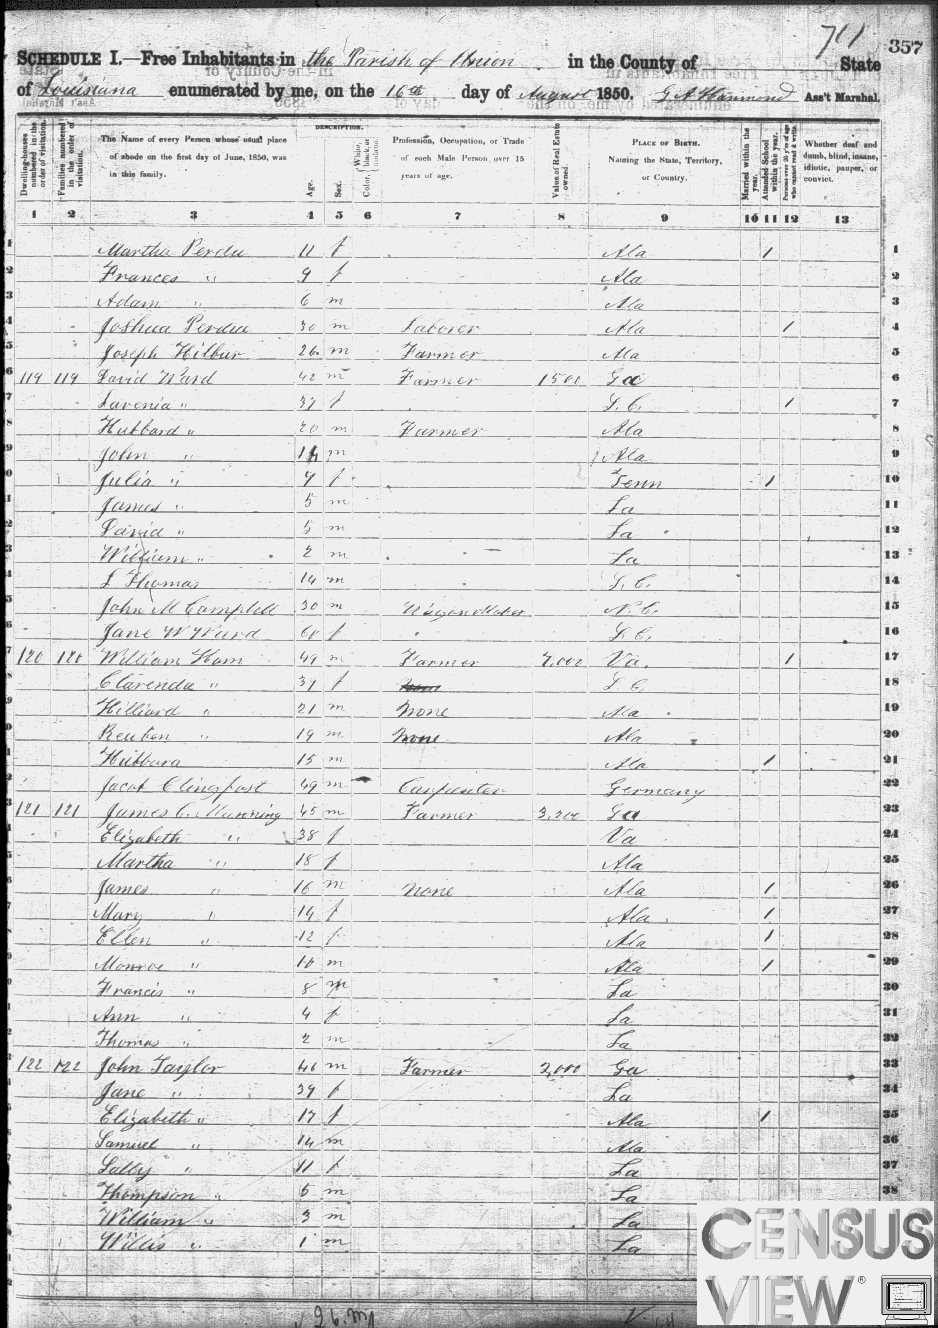 711 357
SCHEDULE I.—Free Inhabitants in the Parish of Union in the County of State
of Louisiana enumerated by me, on the 16th day of August 1850. G A Hammond Ass't Marshal.
Dwelling-houses numbered in the order of visitation.
Families numbered in the order of visitation.
The Name of every Person whose usual place of abode on the first day of June, 1850, was in this family.
DESCRIPTION.
Age.
Sex.
Color, White, black, or mulatto
Profession, Occupation, or Trade of each Male Person over 15 years of age.
Value of Real Estate owned.
PLACE OF BIRTH. Naming the State, Territory, or Country.
Married within the year.
Attended School within the year.
Persons over 20 y'rs of age who cannot read & write.
Whether deaf and dumb, blind, insane, idiotic, pauper, or convict.
1 2 3 4 5 6 7 8 9 10 11 12 13
1 Martha Perdu 11 f Ala 1 1
2 Frances " 9 f Ala 2
3 Adam " 6 m Ala 3
4 Joshua Perdu 30 m Laborer Ala 1 4
5 Joseph Hilbur 26 m Farmer Ala 5
6 119 119 David Ward 42 m Farmer 1500 Ga 6
7 Lavenia " 37 f S.C. 1 7
8 Hubbard " 20 m Farmer Ala 8
9 John " 14 m Ala 9
10 Julia " 7 f Tenn 1 10
11 James " 5 m La 11
12 David " 5 m La 12
13 William " 2 m La 13
14 L Thomas 14 m S.C. 14
15 John M Campbell 30 m Wagon Maker N.C. 15
16 Jane W Ward 60 f S.C. 16
17 120 120 William Ham 49 m Farmer 7,002 Va. 1 17
18 Clarenda " 37 f S.C. 18
19 Hilliard " 21 m None Ala 19
20 Reuben " 19 m None Ala 20
21 Hubbard 15 m Ala 1 21
22 Jacob Clingfost 49 m Carpenter Germany 22
23 121 121 James C. Manning 45 m Farmer 3,200 Ga 23
24 Elizabeth " 38 f Va 24
25 Martha " 18 f Ala 25
26 James " 16 m None Ala 1 26
27 Mary " 14 f Ala 1 27
28 Ellen " 12 f Ala 1 28
29 Monroe " 10 m Ala 1 29
30 Francis " 8 m La 30
31 Ann " 4 f La 31
32 Thomas " 2 m La 32
33 122 122 John Taylor 46 m Farmer 2,000 Ga 33
34 Jane " 39 f La 34
35 Elizabeth " 17 f Ala 1 35
36 Samuel " 14 m Ala 36
37 Sally " 11 f La 37
38 Thompson " 5 m La 38
William " 3 m La
Willis " 1 m La
CENSUS
VIEW ®